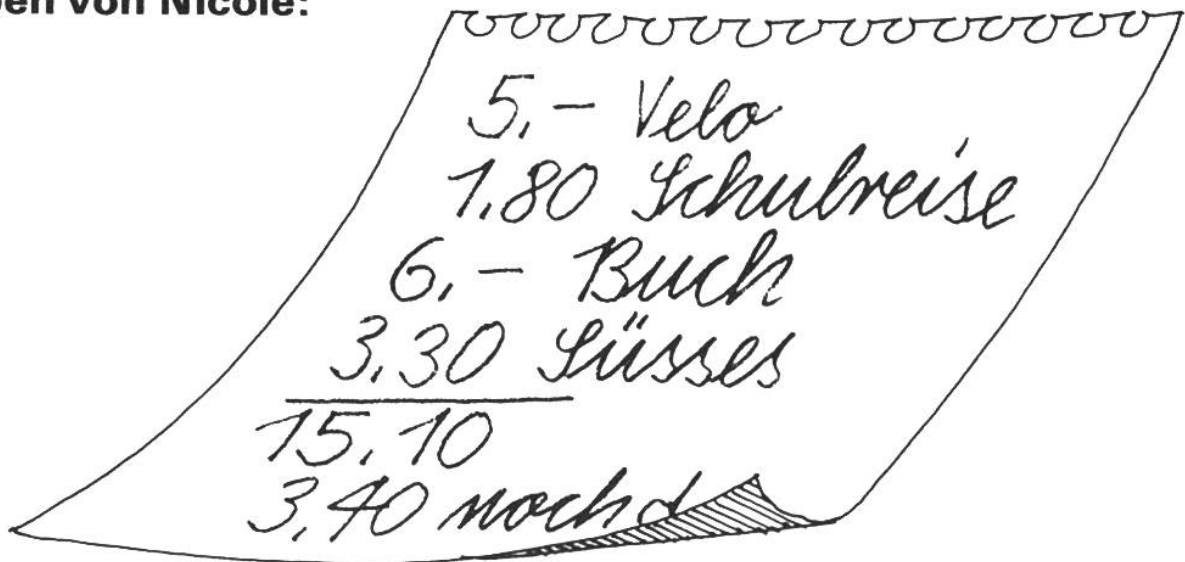 von Nicole:
5.– Velo
1.80 Schulreise
6.– Buch
3.30 Süsses
15.10
3.40 noch d